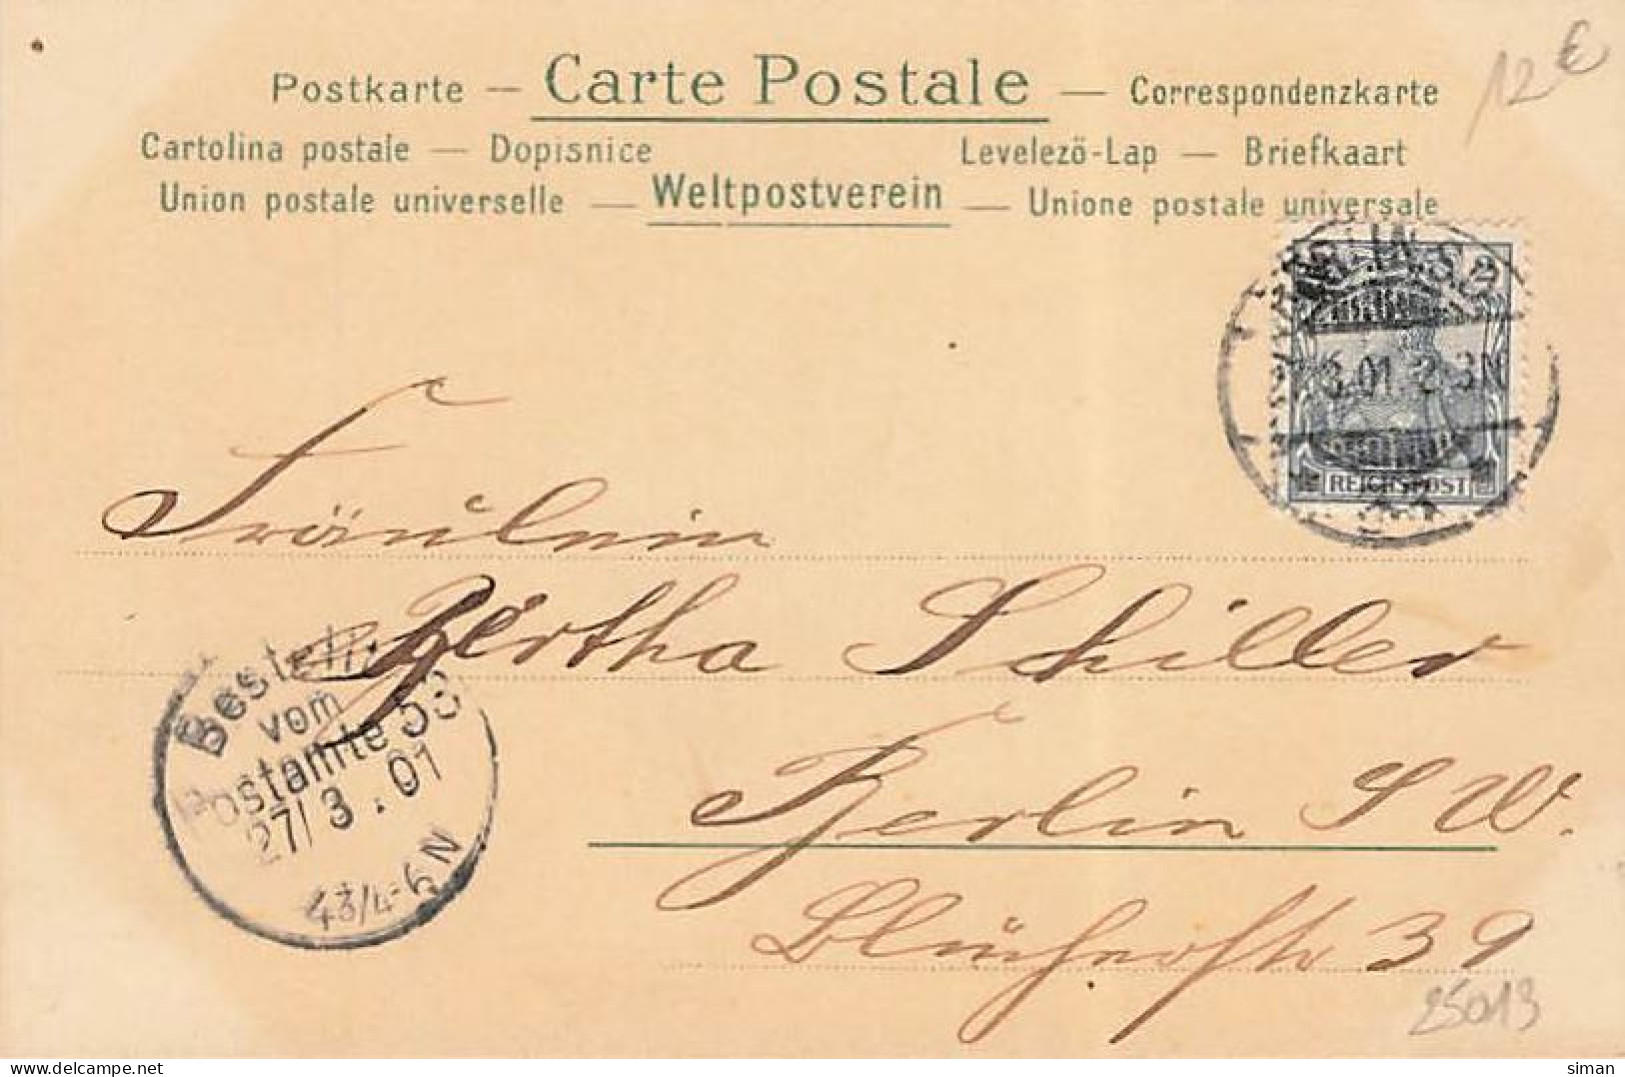 12 €
Postkarte — Carte Postale — Correspondenzkarte
Cartolina postale — Dopisnice Levelező-Lap — Briefkaart
Union postale universelle — Weltpostverein — Unione postale universale
2
3.01. 2-3N
REICHSPOST
Fräulein
Hertha Schiller
Bestellt
vom
Postamte 53
27/3.01
4¾-6N
Berlin SW.
Blücherstr 39
25013
delcampe.net
siman